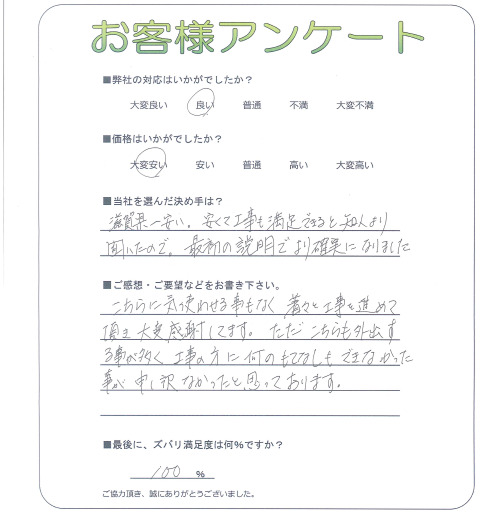 お客様アンケート
■弊社の対応はいかがでしたか？
大変良い 良い 普通 不満 大変不満
■価格はいかがでしたか？
大変安い 安い 普通 高い 大変高い
■当社を選んだ決め手は？
滋賀県一安い。安くて工事も満足できると知人より
聞いたので。最初の説明でより確実になりました
■ご感想・ご要望などをお書き下さい。
こちらに気使わせる事もなく着々と工事を進めて
頂き大変感謝してます。ただこちらも外出す
る事が多く工事の方に何のもてなしもできなかった
事が申し訳なかったと思っております。
■最後に、ズバリ満足度は何％ですか？
100 ％
ご協力頂き、誠にありがとうございました。